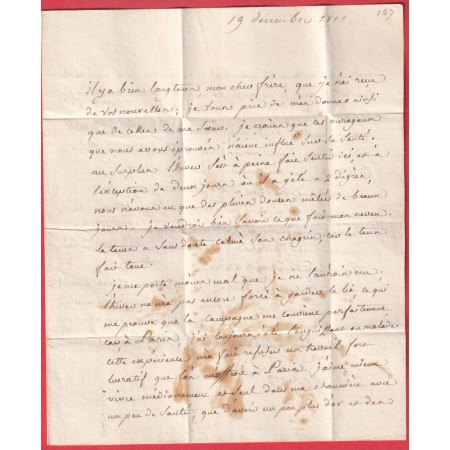 147
19 décembre 1811
il y a bien longtems, mon cher frère, que je n'ai reçu
de vos nouvelles; je vous prie de m'en donner ainsi
que de celles de ma soeur. je crains que les ouragans
que nous avons éprouvés n'aient influé sur la santé.
au surplus l'hiver s'est à peine fait sentir ici, et à
l'exception de deux jours où il a gêlé à 2 dégrés,
nous n'avons eu que des pluies douces mêlées de beaux
jours. je voudrois bien savoir ce que fait mon neveu.
le tems a sans doute calmé son chagrin; car le tems
fait tout.
je me porte moins mal que je ne l'aurois cru.
l'hiver ne m'a pas encore forcé à garder le lit ce qui
me prouve que la campagne me convient parfaitement
car à Paris, j'ai toujours été languissant ou malade.
cette expérience m'a fait refuser un travail fort
lucratif que l'on m'offroit à Paris. j'aime mieux
vivre médiocrement et seul dans ma chaumière avec
un peu de santé, que d'avoir un peu plus d'or et des